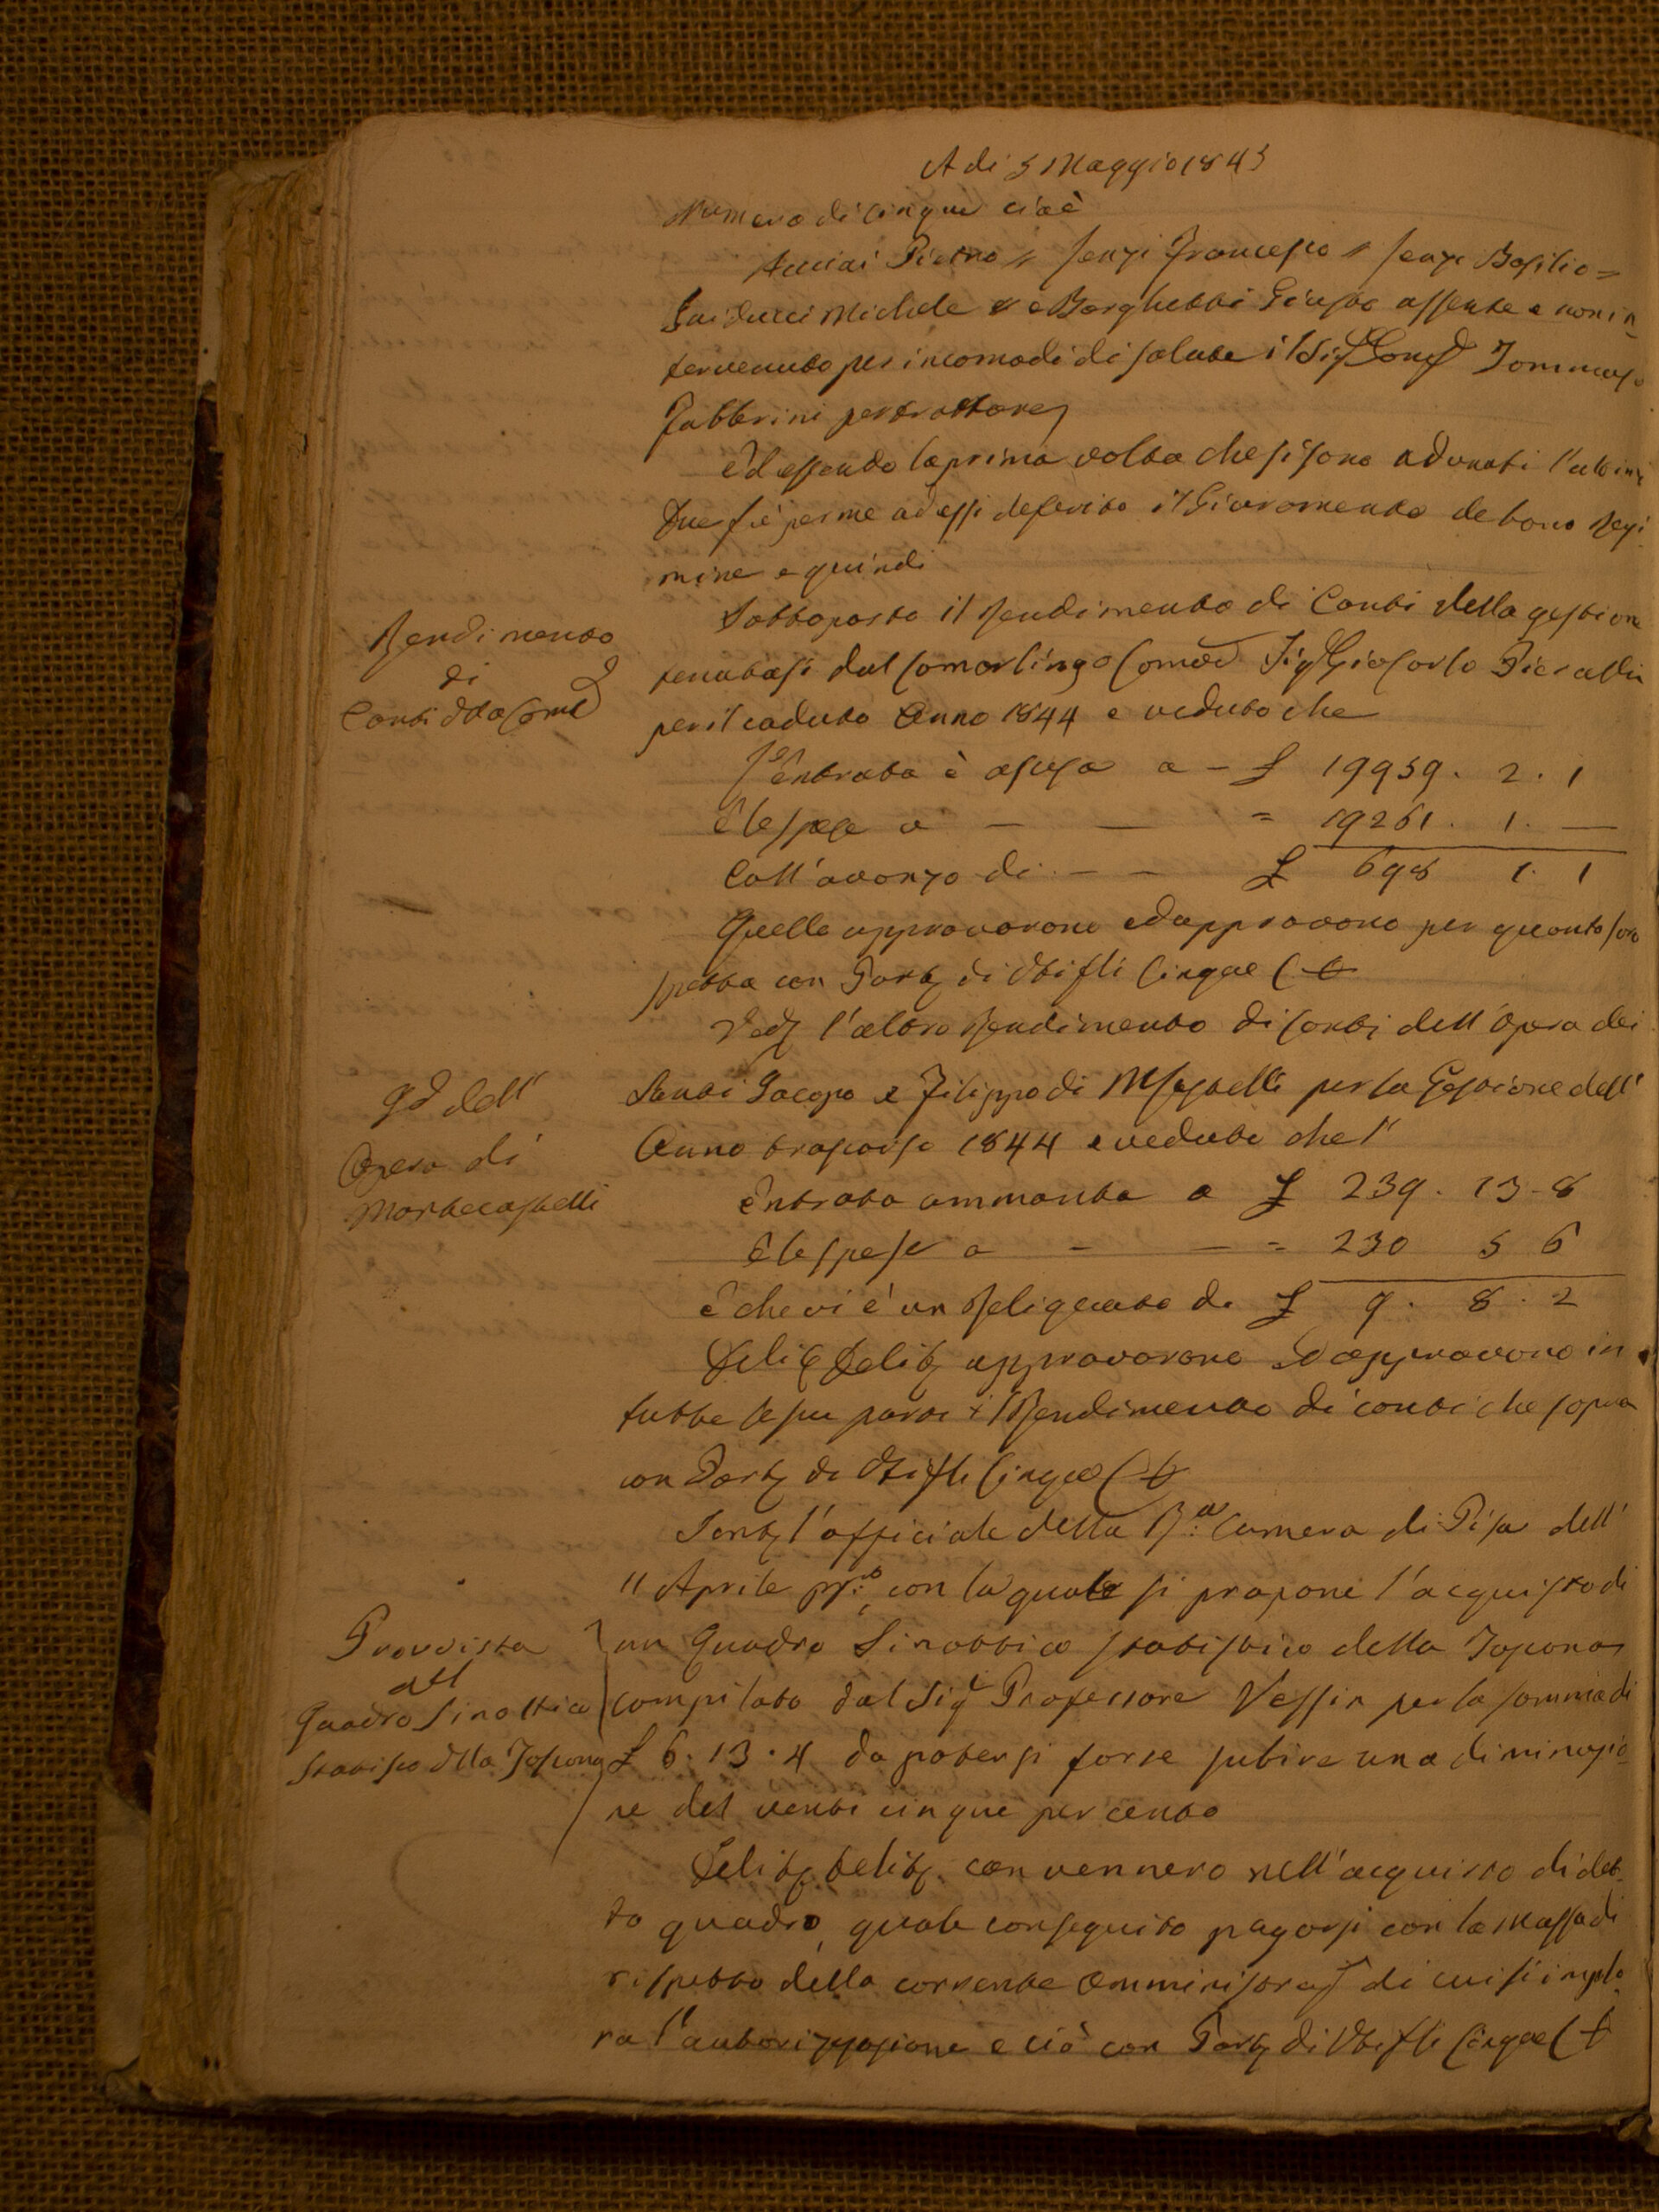 A di 5 Maggio 1845
Numero di Cinque cioè
Pietro = Senzi Francesco = Senzi Basilio =
Guiducci Michele = e Borghetti Giusto assente e non in
tervenuto per incomodi di salute il Sig Conf Tommaso
Fabbrini
Ed essendo la prima volta che si sono adunati l'ultimi
Due fù per me ad essi deferito il Giuramento de bono Regi
mine e quindi
Rendimento
di
Conti dtta Comd
Sottoposto il Rendimento di Conti della gestione
tenutasi dal Camarlingo Comde Sig Gio Carlo Pieralli
per il caduto Anno 1844 e veduto che
Entrata è ascesa a - £ 19959. 2. 1
E le spese a - — = 19261. 1. —
Coll'avanzo di - - £ 698 1. 1
Quello approvarono ed approvano per quanto loro
spetta con Part di Vti fli Cinque
Ved l'altro Rendimento di Conti dell'Opera dei
Gd dell'
Opera di
Montecastelli
Santi Jacopo e Filippo di Mtecastelli per la Gestione dell'
Anno trascorso 1844 e veduto che l'
Entrata ammonta a £ 239. 13-8
E le spese a - — = 230 5 6
e che vi è un Reliquato di £ 9. 8. 2
Delib Delib approvarono ed approvano in
tutte le sue parti il Rendimento di conti che sopra
con Part di Vti fli Cinque
Sent l'officiale della R.a Camera di Pisa dell'
11 Aprile pp.to con la quale si propone l'acquisto di
Provvista
del
Quadro Sinottico
Statisco dlla Toscana
un Quadro Sinottico statistico della Toscana
compilato dal Sig Professore per la somma di
£ 6. 13. 4 da potersi forse subire una diminuzio
ne del venti cinque per cento
Delib delib. convennero nell'acquisto di det
to quadro, quale conseguito pagarsi con la Massa di
rispetto della corrente Amministraz di cui si implo
ra l'autorizzazione e ciò con Part di Vti fli Cinque